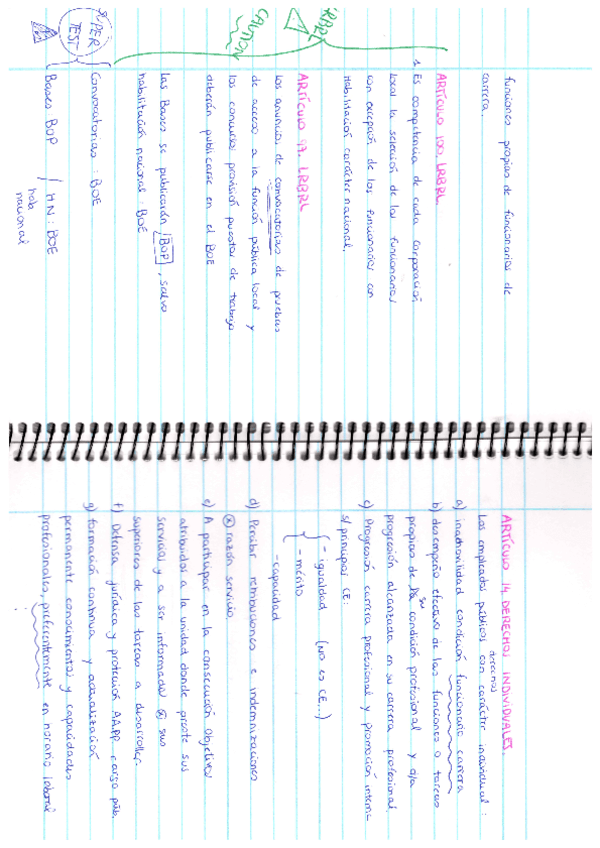 funciones propias de funcionarios de
carrera.
ARTÍCULO 100. LRBRL
1. Es competencia de cada corporación
local la selección de los funcionarios
con excepción de los funcionarios con
Habilitación carácter nacional.
LRBRL
CAUTION
ARTÍCULO 97. LRBRL
Los anuncios de convocatorias de pruebas
de acceso a la función pública local y
los concursos provisión puestos de trabajo
deberán publicarse en el BOE
Las Bases se publicarán BOP, salvo
habilitación nacional: BOE
SUPER
TEST
Convocatorias: BOE
Bases BOP / HN: BOE
hab.
nacional
ARTÍCULO 14. DERECHOS INDIVIDUALES.
derechos
Los empleados públicos con carácter individual:
a) inamovilidad condición funcionario carrera
b) desempeño efectivo de las funciones o tareas
su
propias de condición profesional y d/a
progresión alcanzada en su carrera profesional.
c) Progresión carrera profesional y promoción interna
s/ principios CE.
- igualdad (NO es CE...)
- mérito
- capacidad
d) Percibir retribuciones e indemnizaciones
x razón servicio
e) A participar en la consecución objetivos
atribuidos a la unidad donde preste sus
servicios y a ser informado x sus
superiores de las tareas a desarrollar.
f) Defensa jurídica y protección AAPP cargo púb.
g) formación continua y actualización
permanente conocimientos y capacidades
profesionales, preferentemente en horario laboral